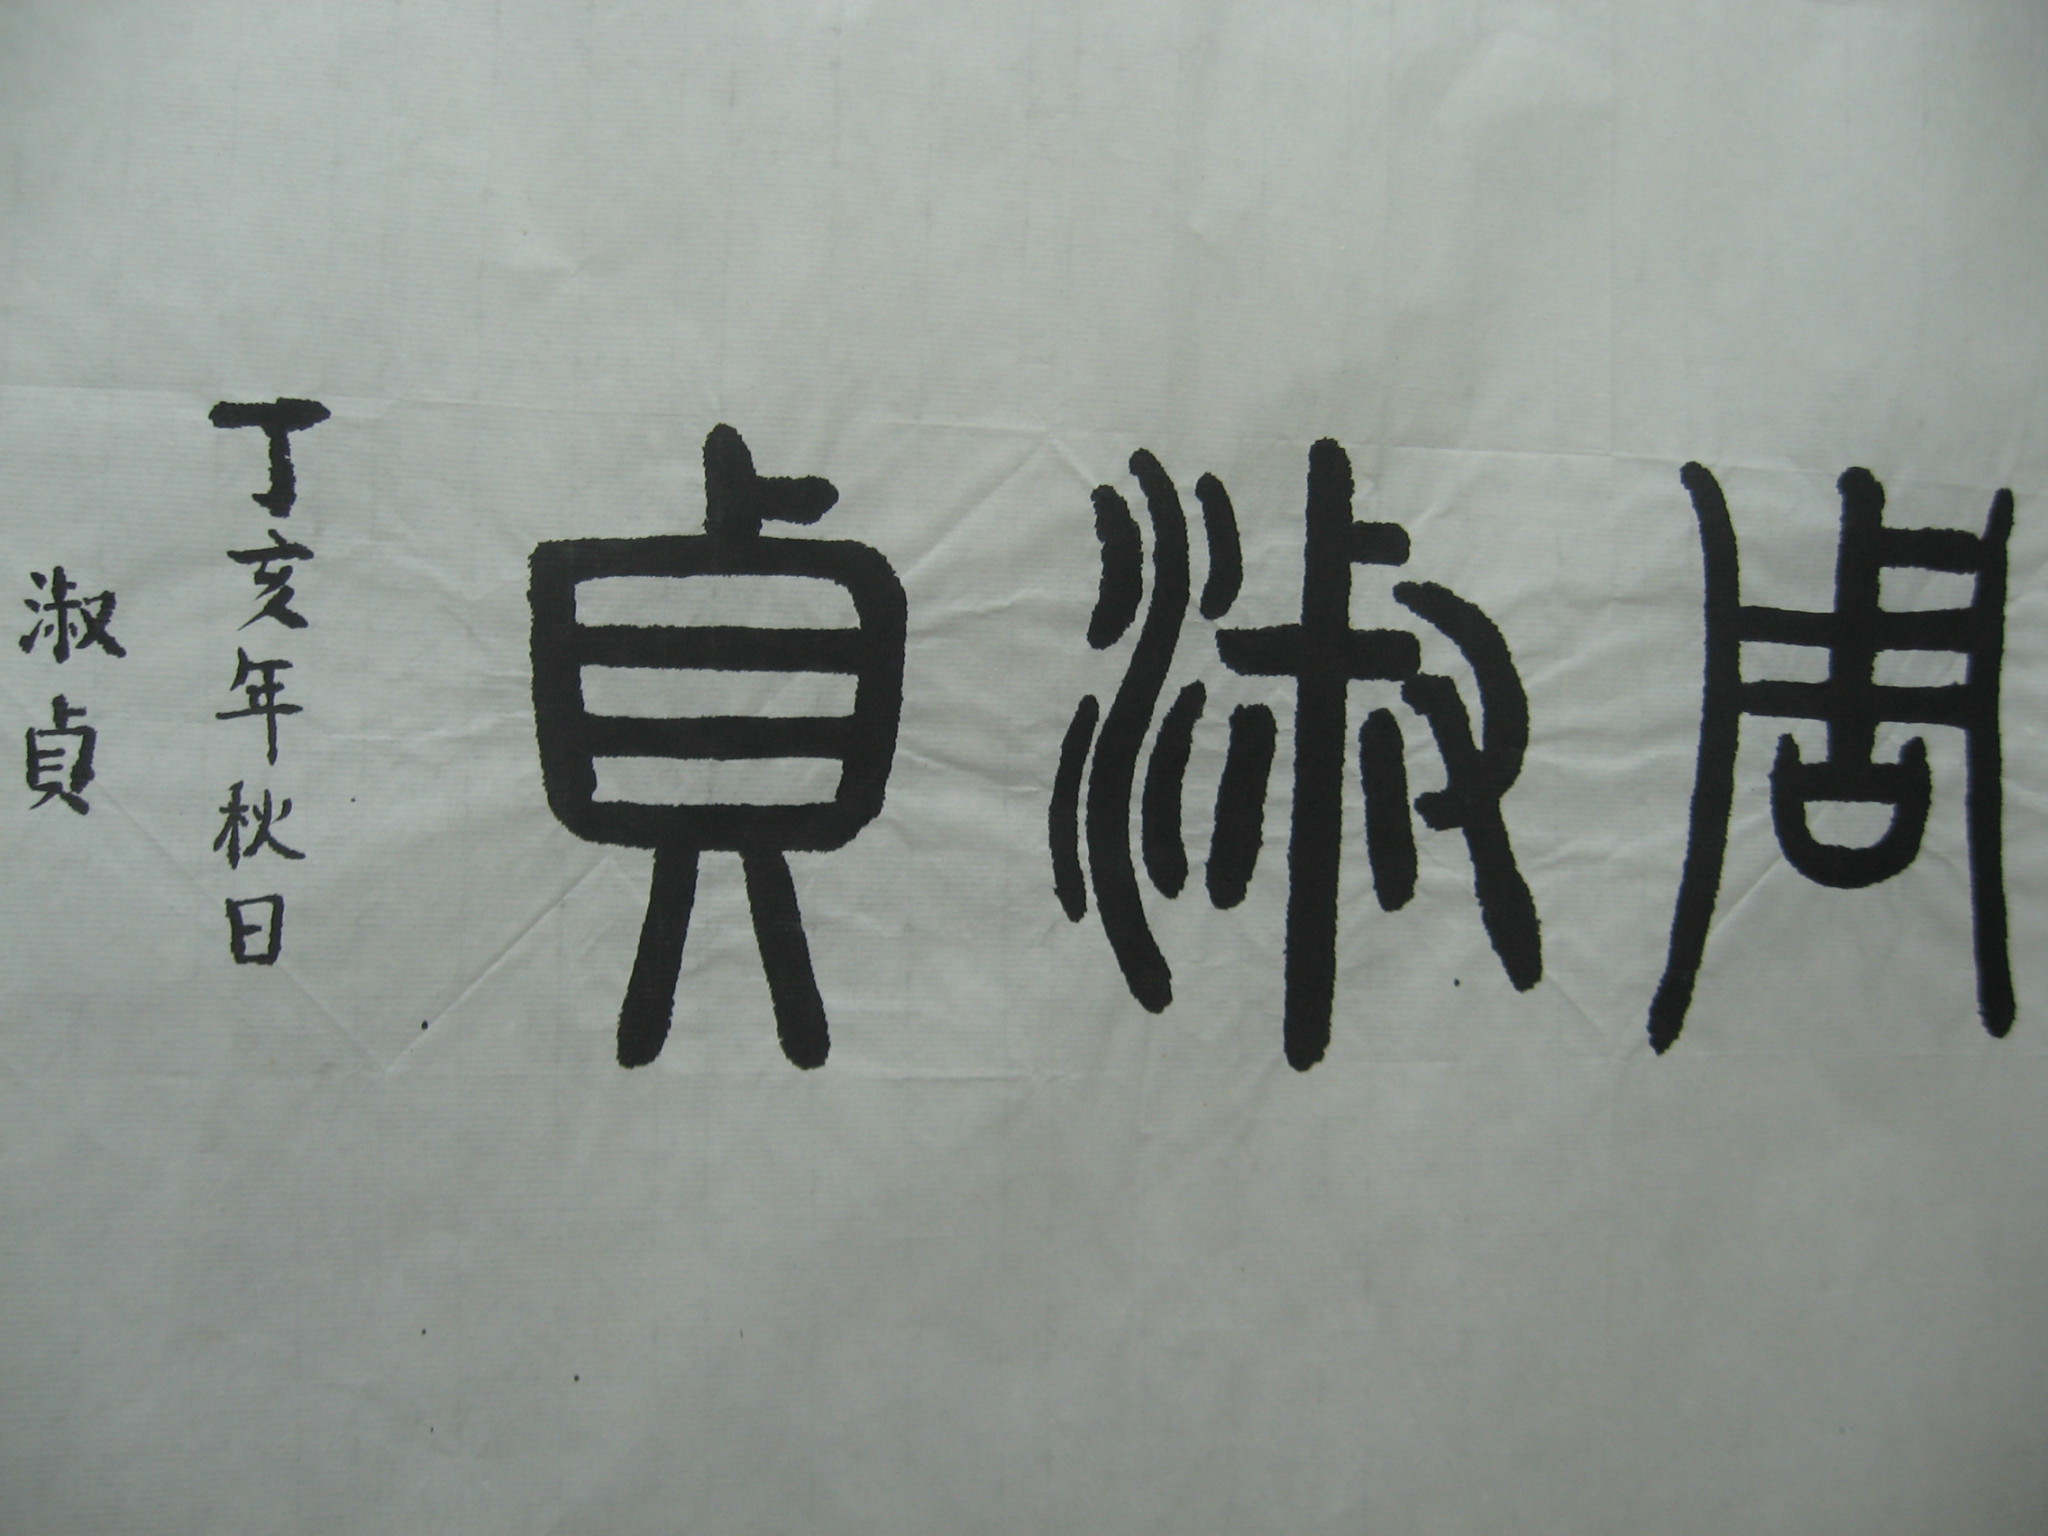 周淑貞
丁亥年秋日
淑貞